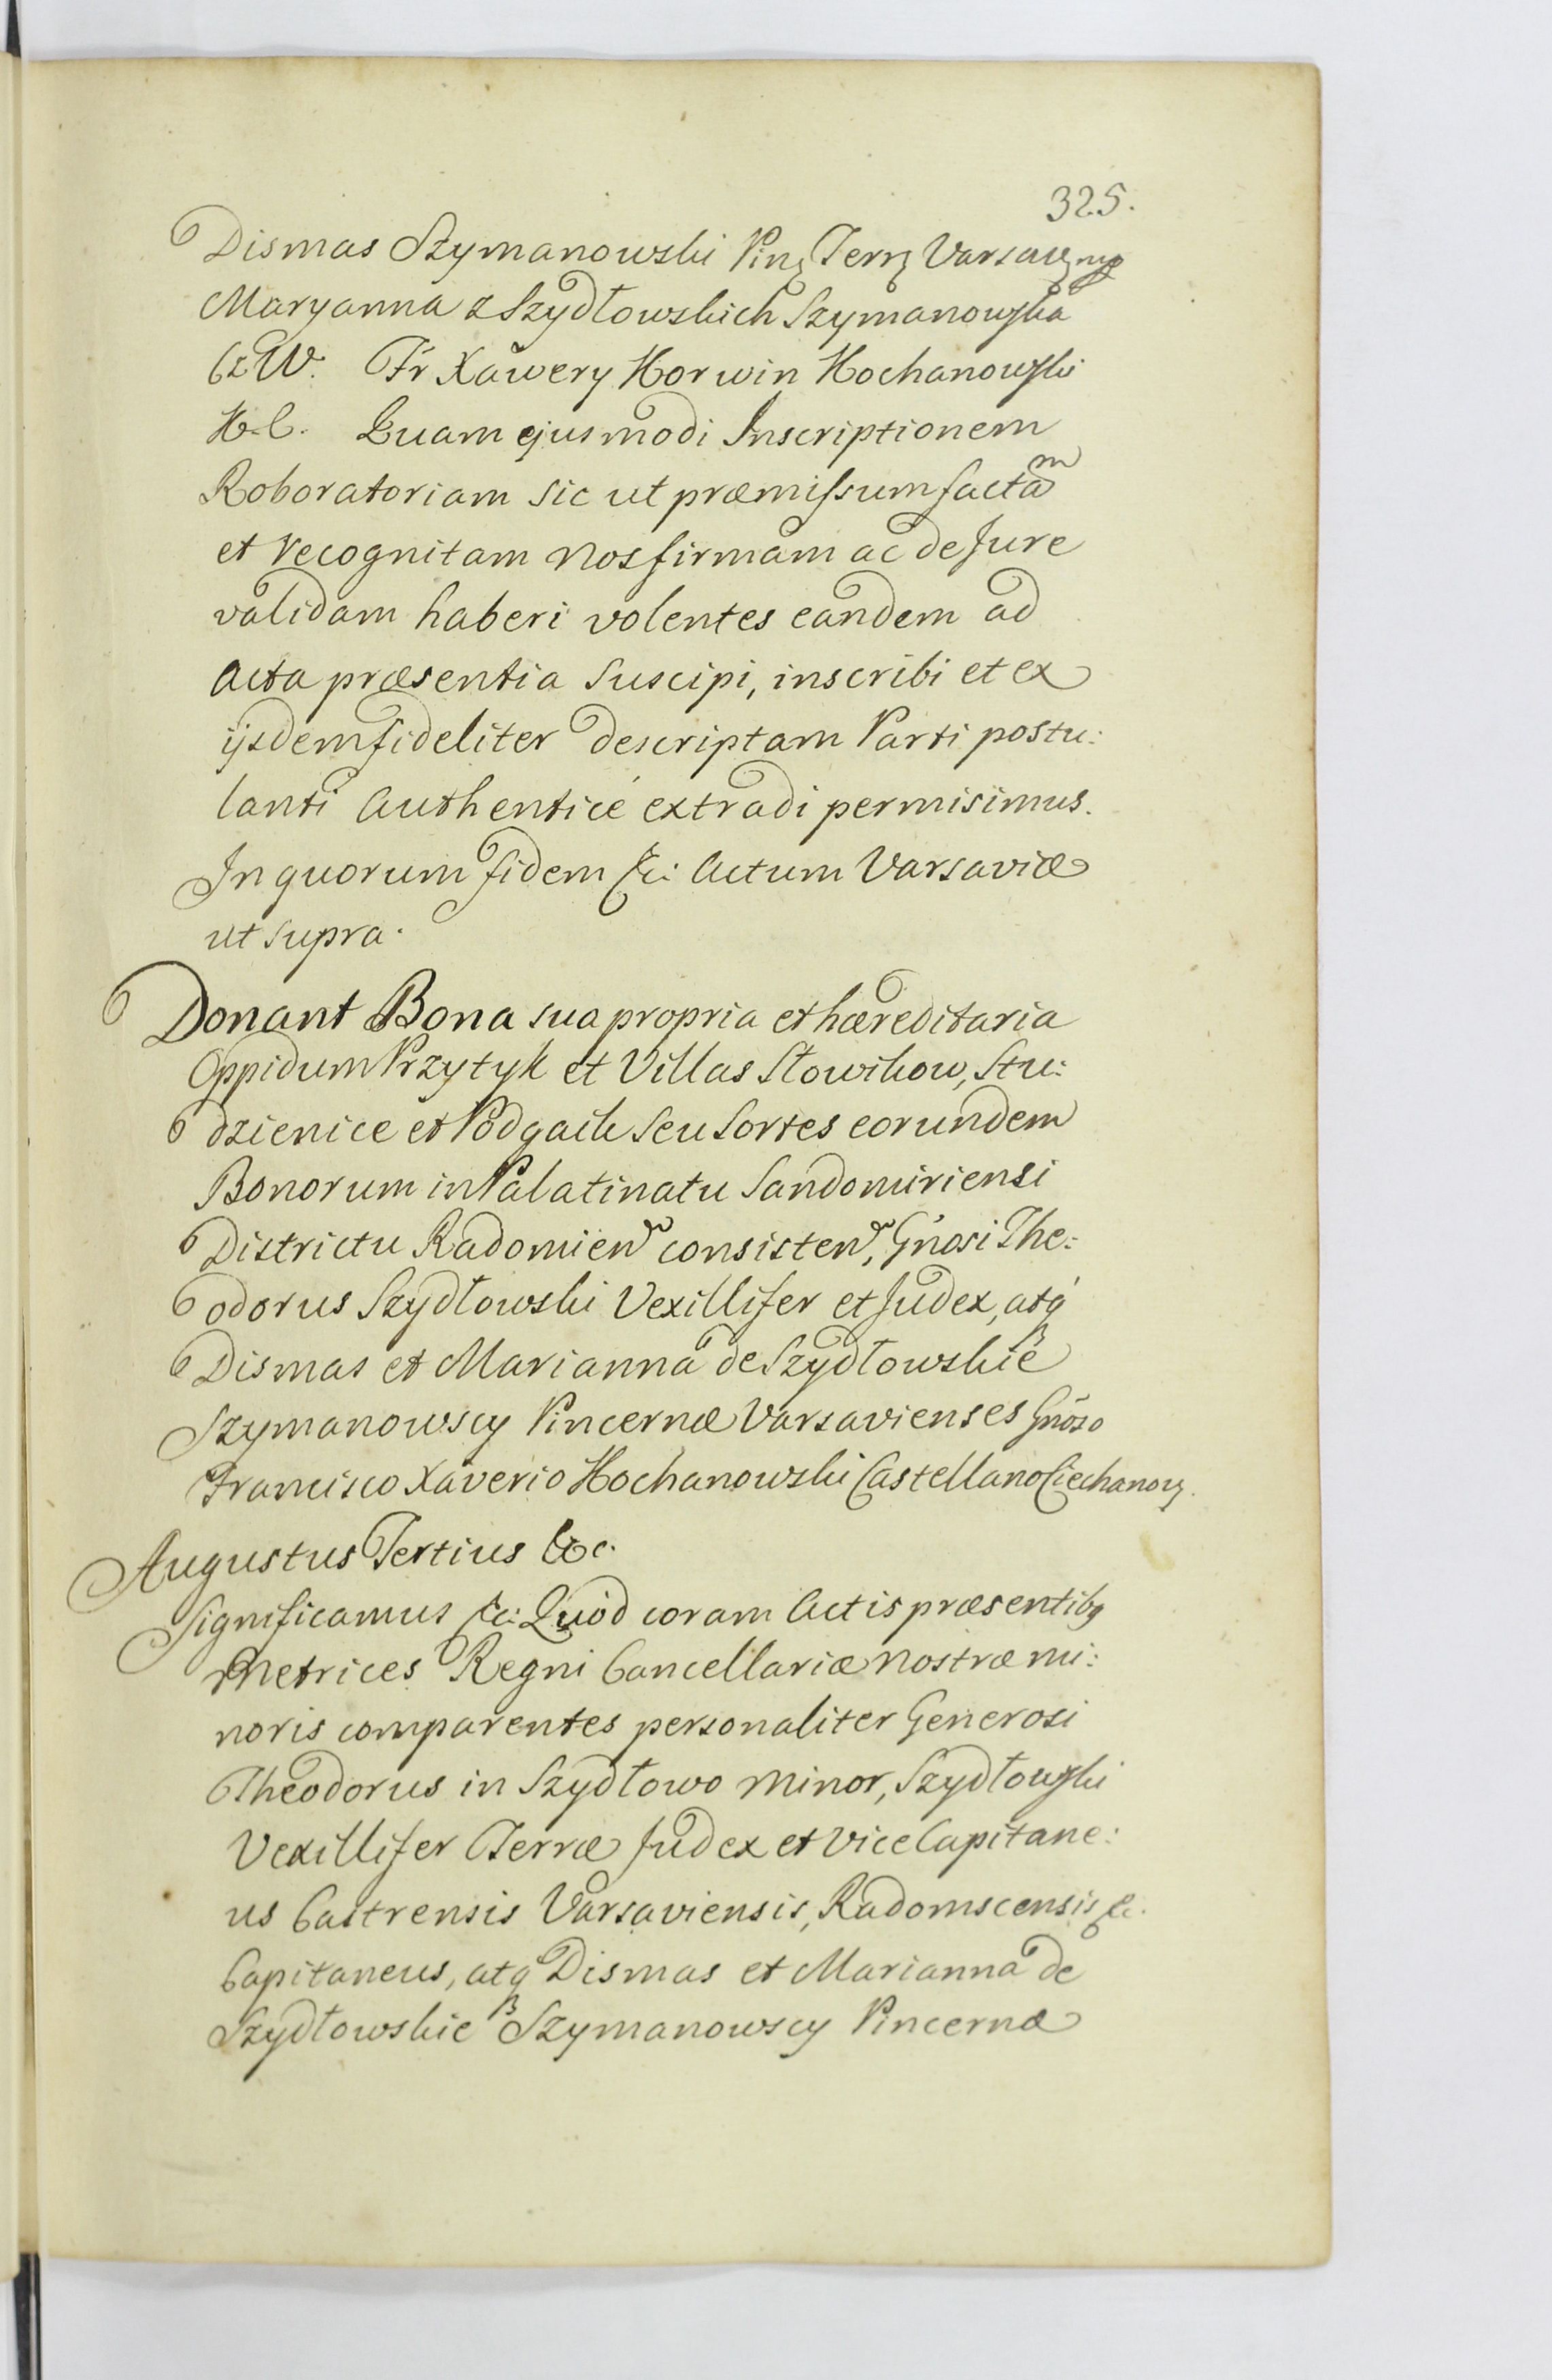 325.
Dismas Szymanowski Pinę Terrę Varsavę mp
Maryanna z Szydłowskich Szymanowska
Cz W. Fr Xawery Korwin Kochanowski
K. C. Quam ejusmodi Inscriptionem
Roboratoriam sic ut præmissum factam
et recognitam nos firmam ac de Jure
validam haberi volentes eandem ad
Acta præsentia suscipi, inscribi et ex
ijsdem fideliter descriptam Parti postu:
lanti Authenticé extradi permisimus.
In quorum fidem &c: Actum Varsaviæ
ut supra.
Donant Bona sua propria et hæreditaria
Oppidum Przytyk et Villas Słowikow, Stu:
dzienice et Podgaik seu sortes eorundem
Bonorum in Palatinatu Sandomiriensi
Districtu Radomien consisten, Gnosi The:
odorus Szydłowski Vexillifer et Judex, atq
Dismas et Marianna de Szydłowskie
Szymanowscy Pincernæ Varsavienses Gnoso
Francisco Xaverio Kochanowski Castellano Ciechanovę.
Augustus Tertius &c.
Significamus &c: Quód coram Actis præsentibq
Metrices Regni Cancellariæ nostræ mi:
noris comparentes personaliter Generosi
Theodorus in Szydłowo Minor, Szydłowski
Vexillifer Terræ Judex et Vice Capitane:
us Castrensis Varsaviensis, Radomscensis &c.
Capitaneus, atq Dismas et Marianna de
Szydłowskie Szymanowscy Pincernæ